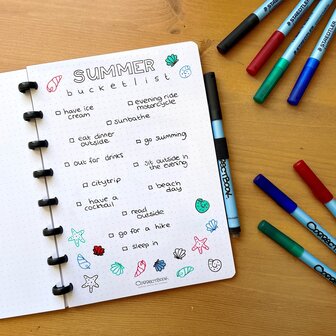 SUMMER
bucketlist
have ice
cream
evening ride
motorcycle
sunbathe
eat dinner
outside
go summing
out for drinks
sit outside in
the evening
citytrip
beach
day
have a
cocktail
read
outside
go for a hike
sleep in
CORRECTBOOK
STAEDTLER